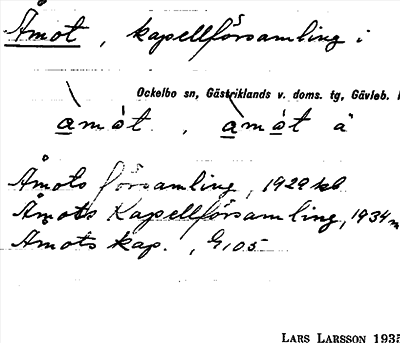 Åmot, kapellförsamling i
Ockelbo sn, Gästriklands v. doms. tg, Gävleb.
amòt , amòt ä
Åmots församling, 1929
Åmots Kapellförsamling, 1934
Åmots kap.
LARS LARSSON 1935